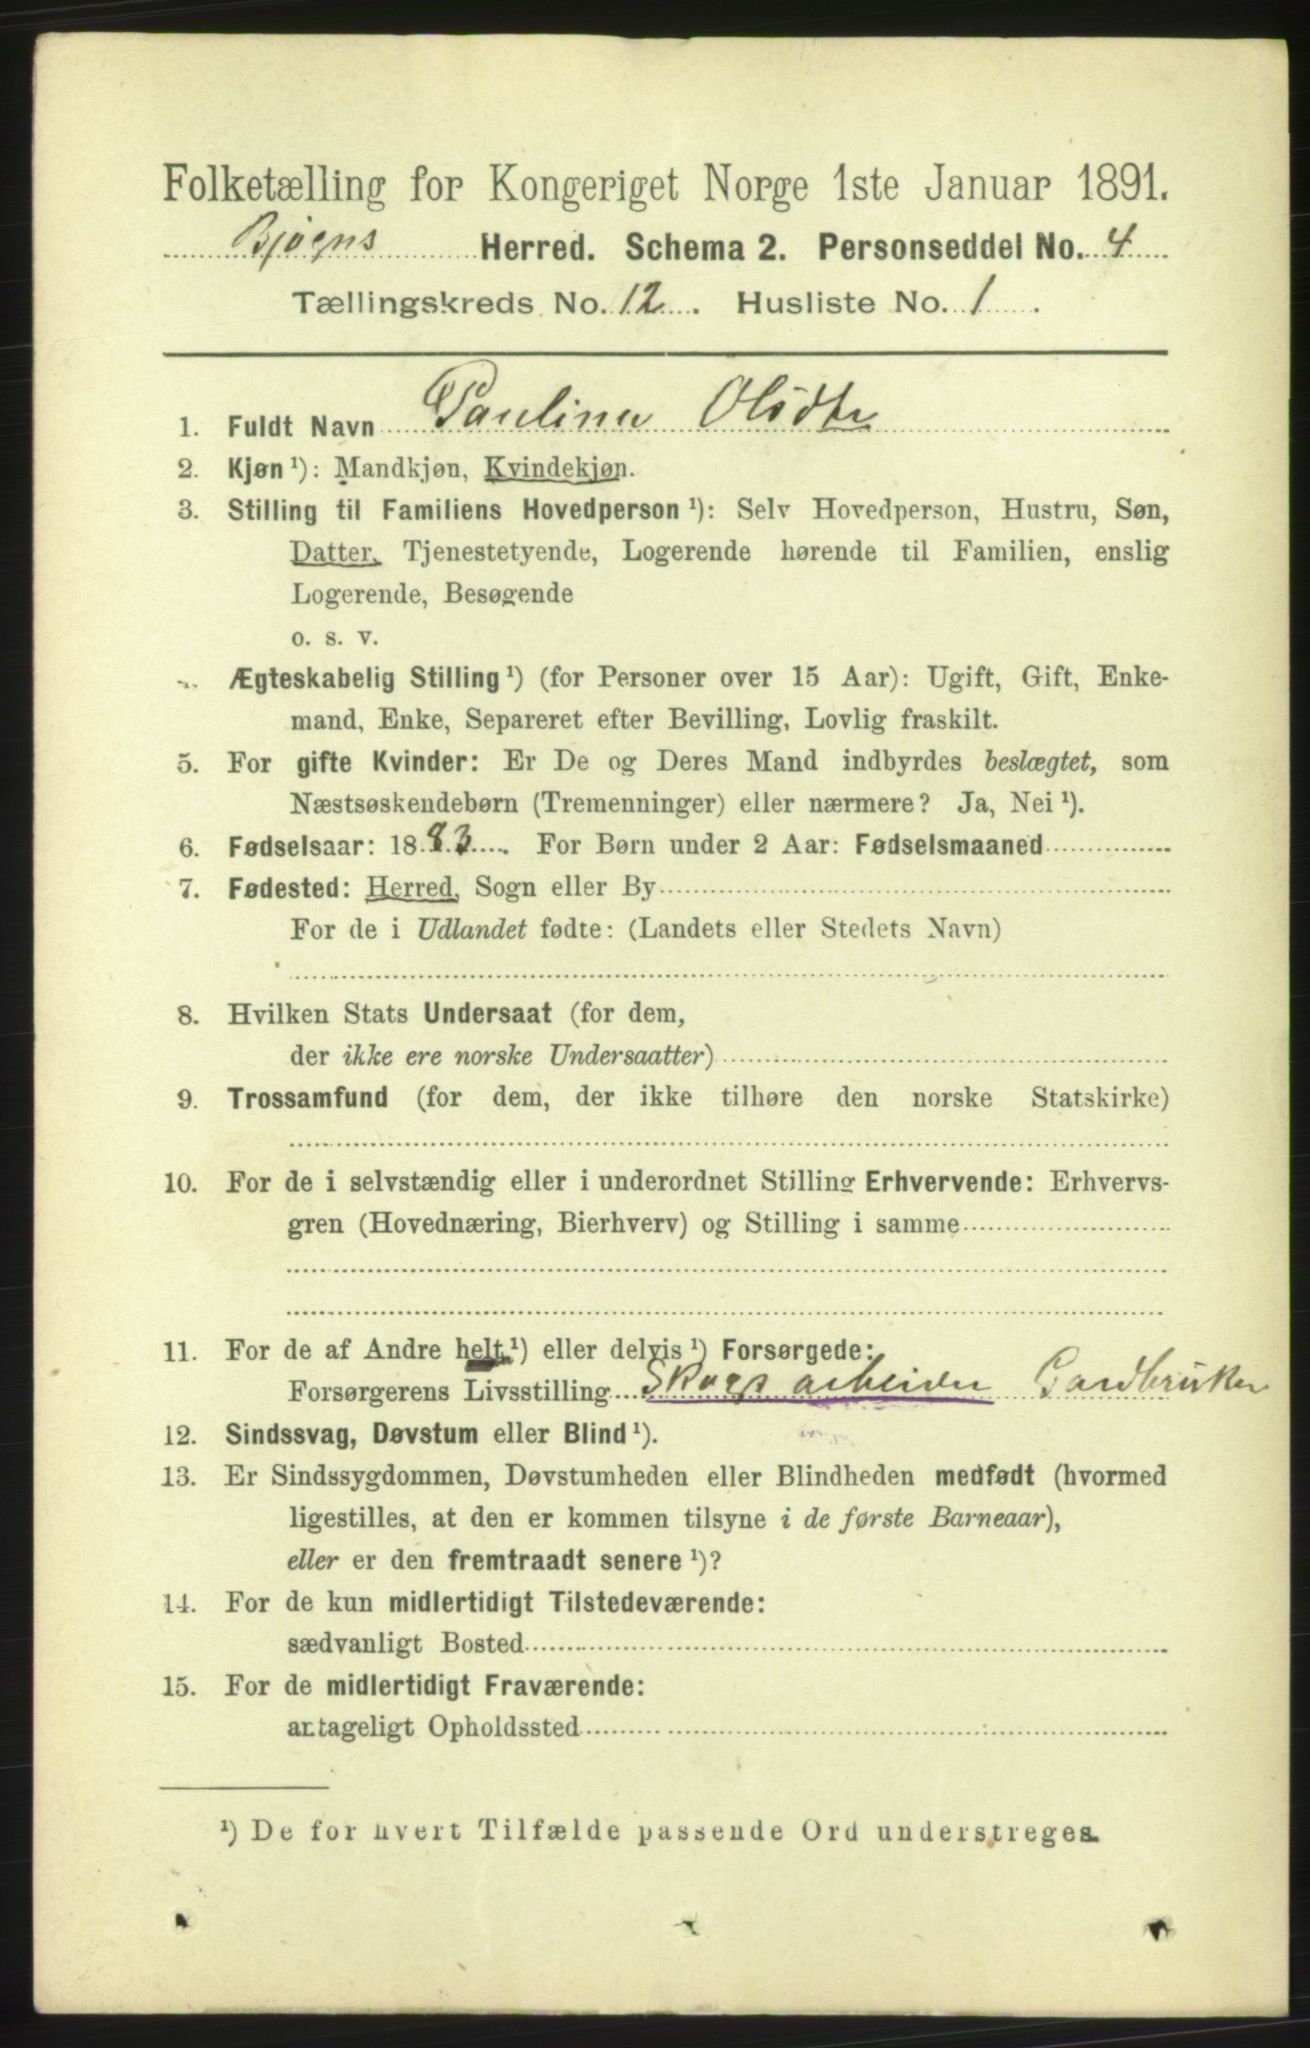 Folketælling for Kongeriget Norge 1ste Januar 1891.
Herred. Schema 2. Personseddel No. 4
Tællingskreds No. 12. Husliste No. 1.
1. Fuldt Navn Pauline Olsdtr
2. Kjøn ¹): Mandkjøn, Kvindekjøn.
3. Stilling til Familiens Hovedperson ¹): Selv Hovedperson, Hustru, Søn,
Datter, Tjenestetyende, Logerende hørende til Familien, enslig
Logerende, Besøgende
o. s. v.
Ægteskabelig Stilling ¹) (for Personer over 15 Aar): Ugift, Gift, Enke-
mand, Enke, Separeret efter Bevilling, Lovlig fraskilt.
5. For gifte Kvinder: Er De og Deres Mand indbyrdes beslægtet, som
Næstsøskendebørn (Tremenninger) eller nærmere? Ja, Nei ¹).
6. Fødselsaar: 1883. For Børn under 2 Aar: Fødselsmaaned
7. Fødested: Herred, Sogn eller By
For de i Udlandet fødte: (Landets eller Stedets Navn)
8. Hvilken Stats Undersaat (for dem,
der ikke ere norske Undersaatter)
9. Trossamfund (for dem, der ikke tilhøre den norske Statskirke)
10. For de i selvstændig eller i underordnet Stilling Erhvervende: Erhvervs-
gren (Hovednæring, Bierhverv) og Stilling i samme
11. For de af Andre helt ¹) eller delvis ¹) Forsørgede:
Forsørgerens Livsstilling Skogsarbeider Gardbruker
12. Sindssvag, Døvstum eller Blind ¹).
13. Er Sindssygdommen, Døvstumheden eller Blindheden medfødt (hvormed
ligestilles, at den er kommen tilsyne i de første Barneaar),
eller er den fremtraadt senere ¹)?
14. For de kun midlertidigt Tilstedeværende:
sædvanligt Bosted
15. For de midlertidigt Fraværende:
antageligt Opholdssted
¹) De for hvert Tilfælde passende Ord understreges.